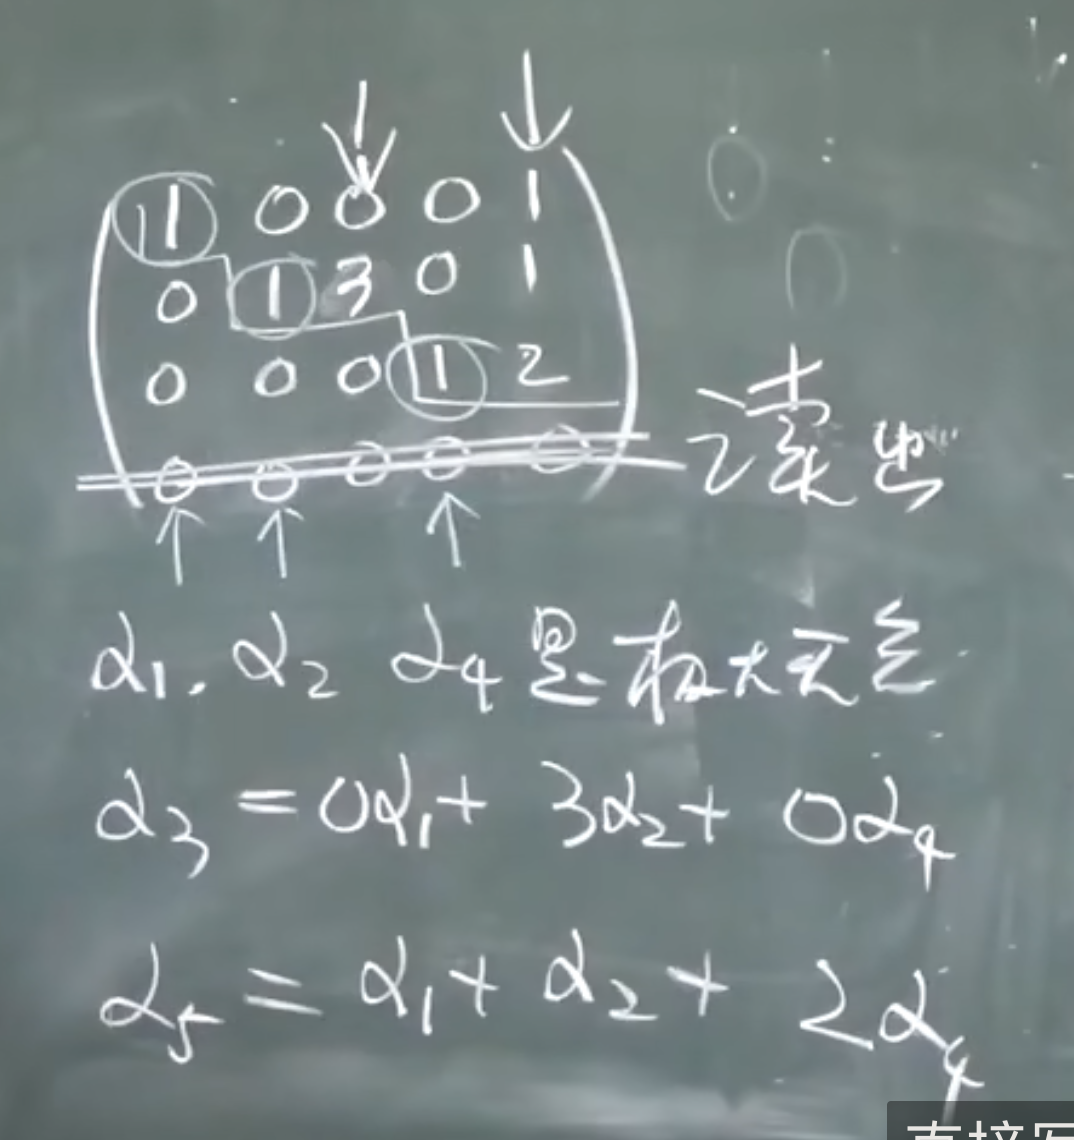 1 0 0 0 1
0 1 3 0 1
0 0 0 1 2
0 0 0 0 0
读出
α1. α2 α4 是极大无关
α3 = 0α1 + 3α2 + 0α4
α5 = α1 + α2 + 2α4
直接写